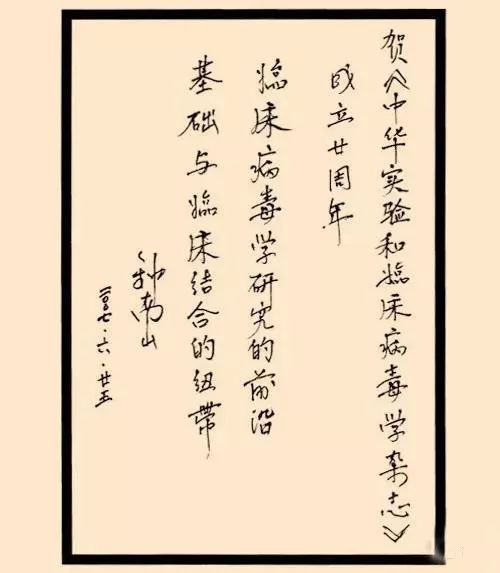 贺《中华实验和临床病毒学杂志》
成立廿周年
临床病毒学研究的前沿
基础与临床结合的纽带
钟南山
二〇〇七.六.廿五